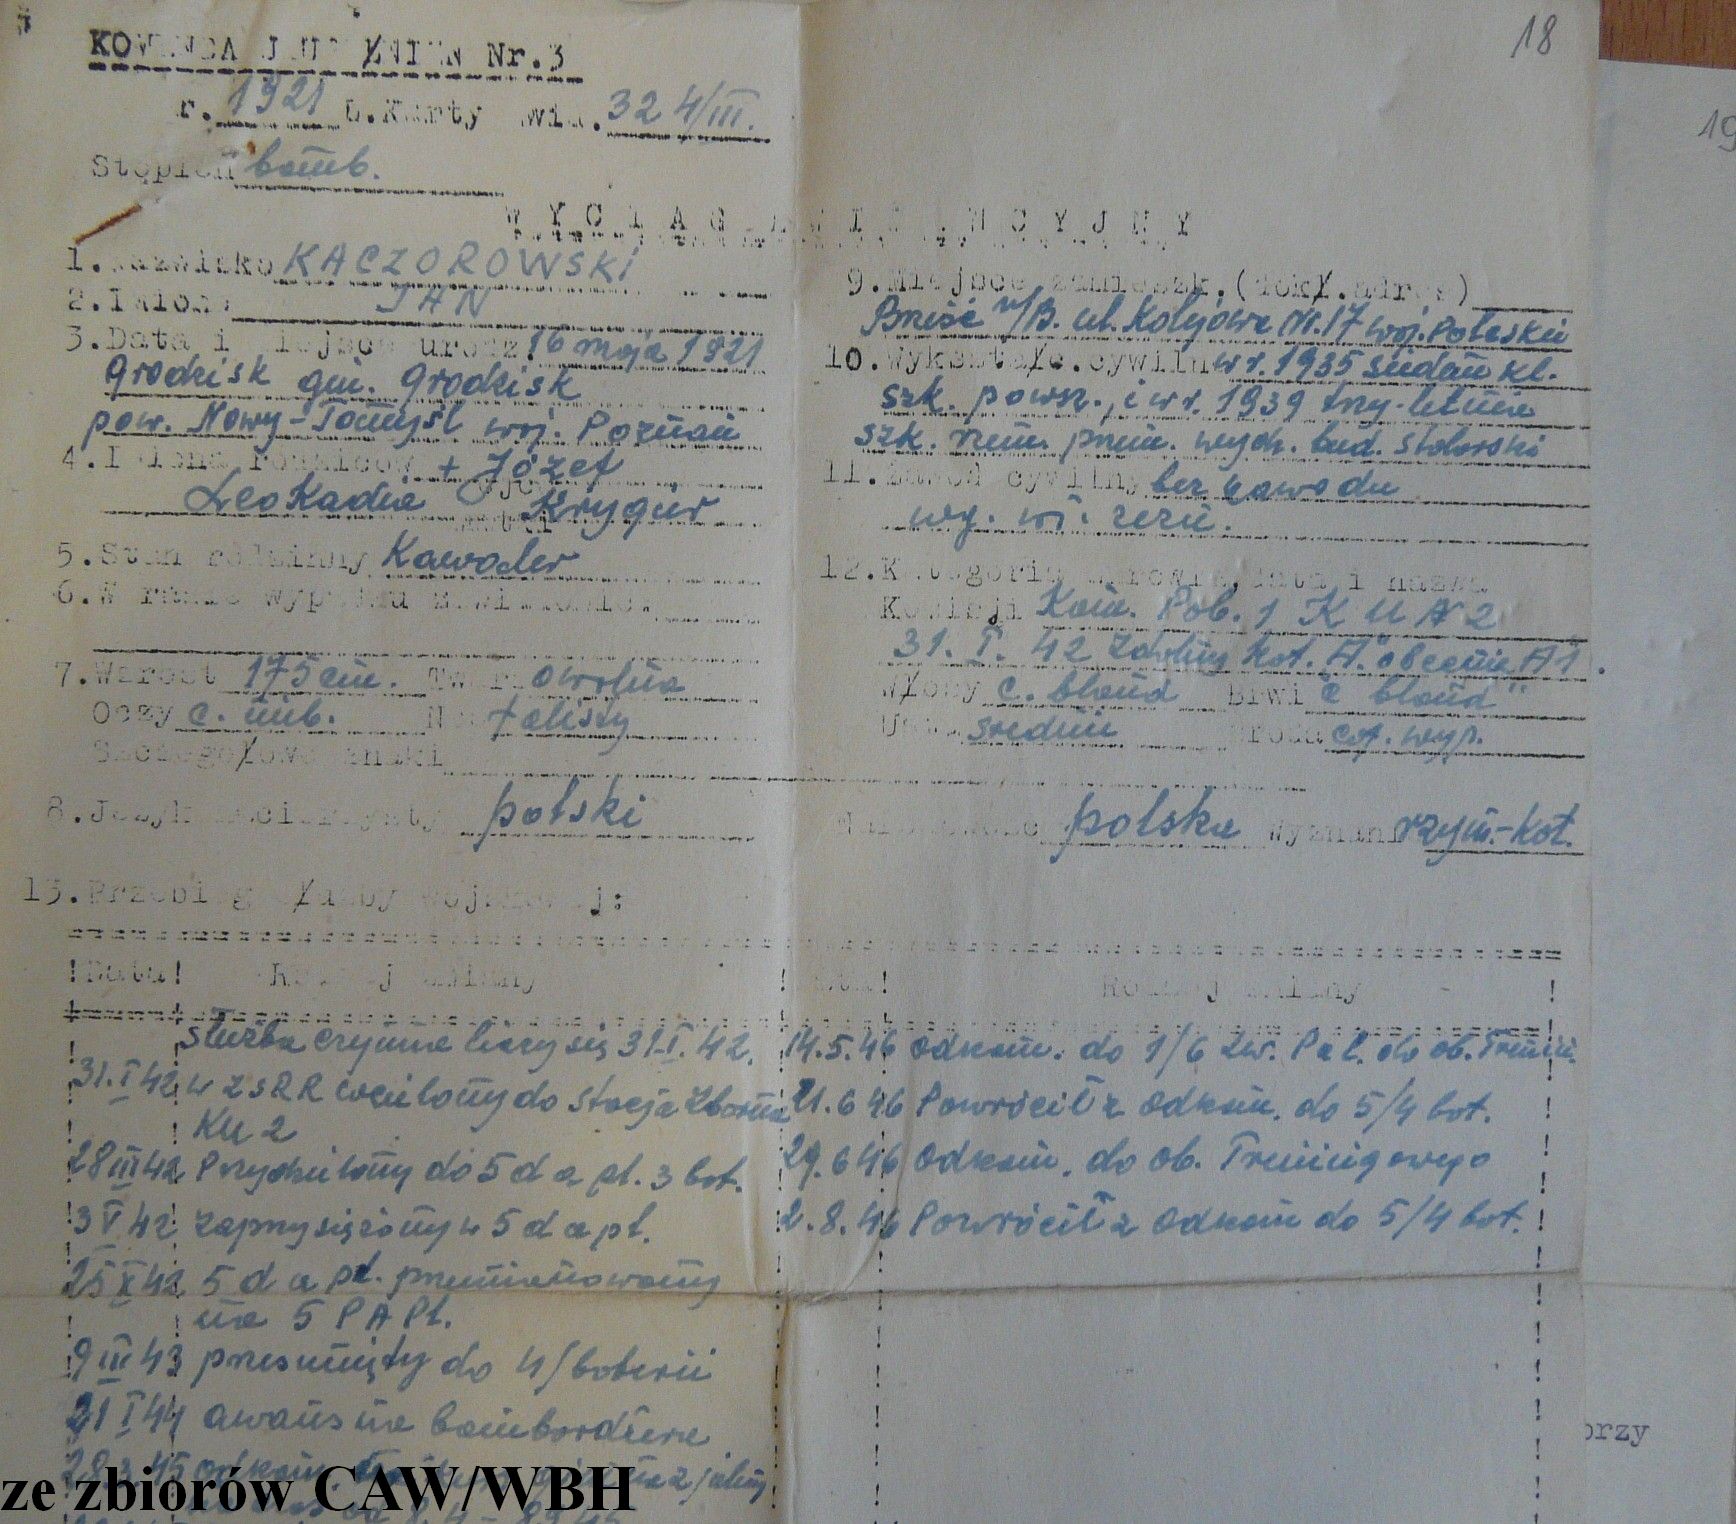 18
KOMENDA UZUPEŁNIEŃ Nr.3
r. 1921 L.Karty ewid. 324/III.
19
Stopień bomb.
WYCIĄG EWIDENCYJNY
1.Nazwisko KACZOROWSKI
2.Imiona JAN
3.Data i miejsce urodz. 16 maja 1921
Grodzisk gm. Grodzisk
pow. Nowy-Tomyśl woj. Poznań
4.Imiona rodziców + Józef
ojca
Leokadia Krygier
matki
5.Stan rodzinny Kawaler
6.W razie wypadku zawiadomić:
7.Wzrost 175 cm. Twarz owalna
Oczy c. nieb. Nos falisty
Szczegółowe znaki
8.Język macierzysty polski
9.Miejsce zamieszk.(dokł.adres)
Brześć n/B. ul. Kolejowa Nr.17 woj. Poleskie
10.Wykształc.cywiln w r. 1935 siedem kl.
szk. powsz., i w r. 1939 trzy-letnia
szk. rzem. prem. wydz. bud. stolarski
11.Zawód cywilny bez zawodu
12.Kategoria zdrowia,data i nazwa
Komisji Kom. Pob. 1 K U N 2
31. I. 42 zdolny kat. "A" obecnie A1.
Włosy c. blond Brwi c blond"
Usta średnie Broda
Narodowość polska wyznanie rzym.-kat.
13.Przebieg służby wojskowej:
!Data! Rodzaj zmiany ! Data! Rodzaj zmiany !
służba czynna liczy się 31.I.42.
31.I 42 w ZSRR wcielony do Stacja Zborna
KU 2
28 III 42 Przydzielony do 5 d a pl. 3 bat.
3 V 42 zaprzysiężony w 5 d a pl.
25 X 42 5 d a pl. przemianowany
na 5 P A Pl.
9 III 43 przesunięty do 4/baterii
21 I 44 awans na bombardiera
28.3.45 odkom.
14.5.46 odkom. do 1/6 Lw. Pal. do ob. Trenin.
21.6 46 Powrócił z odkom. do 5/4 bat.
29.6 46 odkom. do ob. Treningowego
2.8.46 Powrócił z odkom do 5/4 bat.
orzy
ze zbiorów CAW/WBH